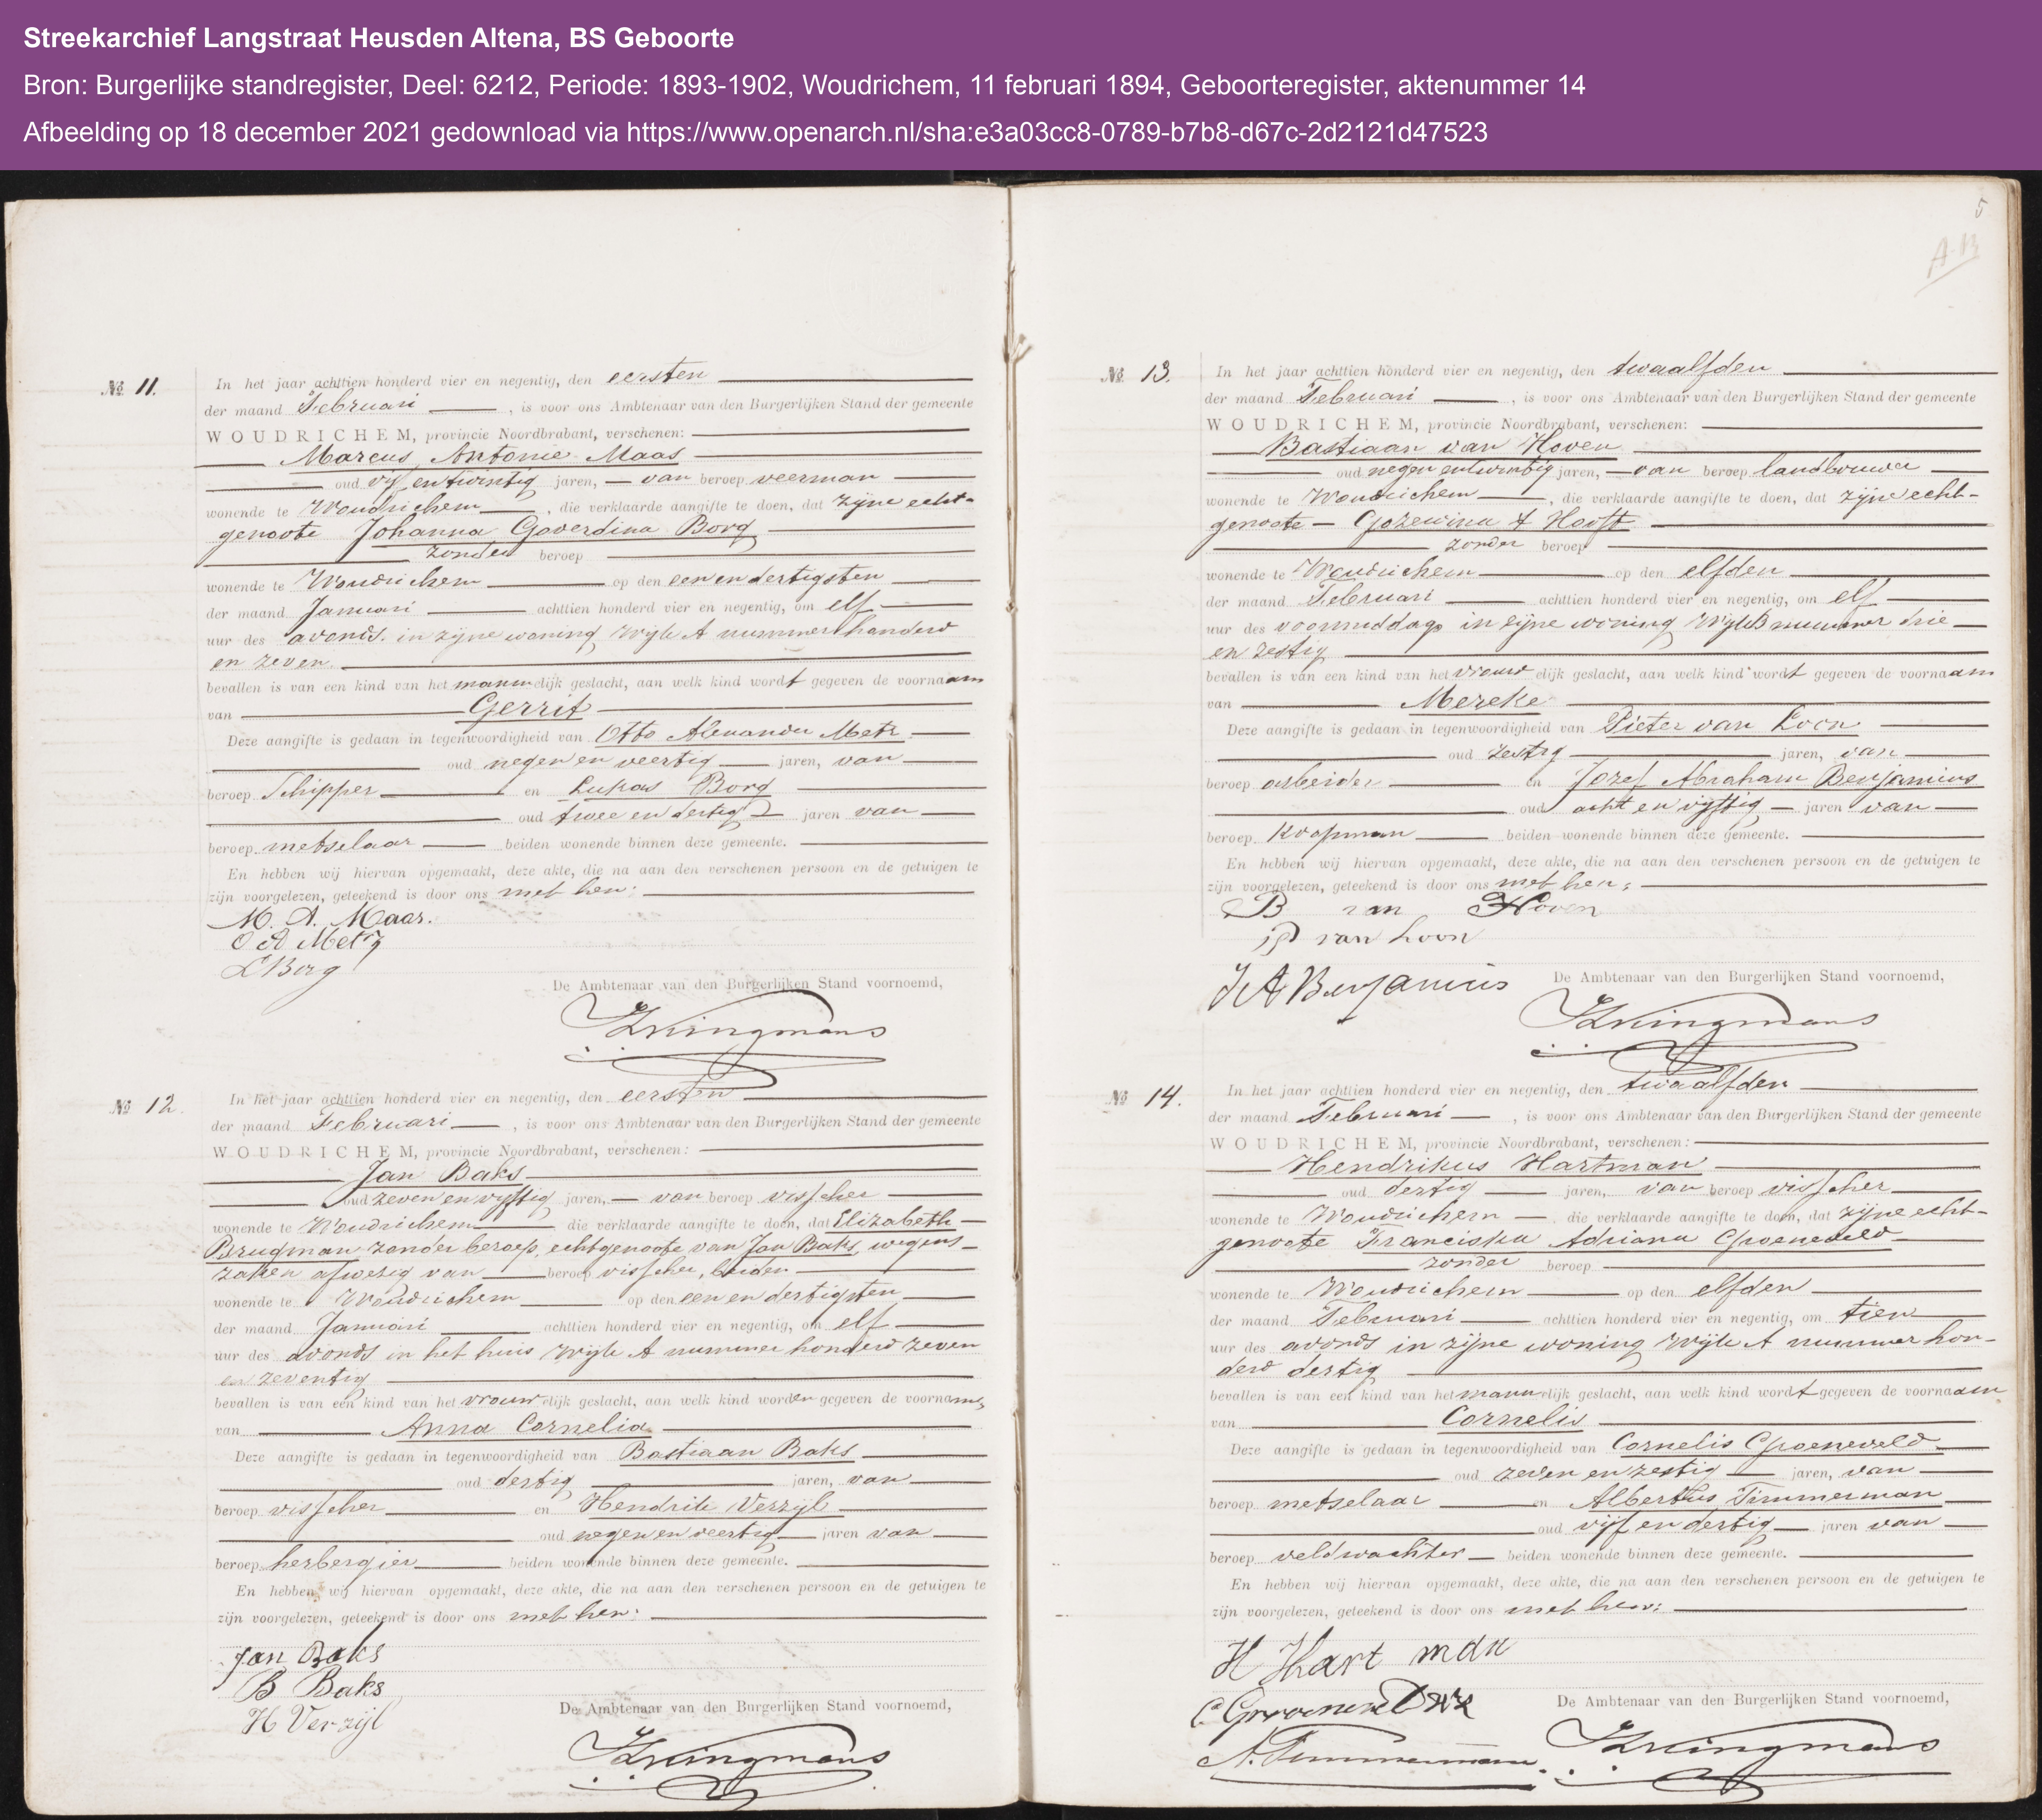 Streekarchief Langstraat Heusden Altena, BS Geboorte
Bron: Burgerlijke standregister, Deel: 6212, Periode: 1893-1902, Woudrichem, 11 februari 1894, Geboorteregister, aktenummer 14
Afbeelding op 18 december 2021 gedownload via https://www.openarch.nl/sha:e3a03cc8-0789-b7b8-d67c-2d2121d47523
№ 11.
In het jaar achttien honderd vier en negentig, den eersten
der maand Februari, is voor ons Ambtenaar van den Burgerlijken Stand der gemeente
WOUDRICHEM, provincie Noordbrabant, verschenen:
Marcus Antonie Maas
oud vijf en twintig jaren, van beroep veerman
wonende te Woudrichem, die verklaarde aangifte te doen, dat zijne echt-
genoote Johanna Goverdina Borg
zonder beroep
wonende te Woudrichem op den een en dertigsten
der maand Januari achttien honderd vier en negentig, om elf
uur des avonds in zijne woning Wijk A nummer honderd
en zeven
bevallen is van een kind van het mannelijk geslacht, aan welk kind wordt gegeven de voornaam
van Gerrit
Deze aangifte is gedaan in tegenwoordigheid van Otto Alexander Metz
oud negen en veertig jaren, van
beroep Schipper en Lukas Borg
oud twee en dertig jaren van
beroep metselaar beiden wonende binnen deze gemeente.
En hebben wij hiervan opgemaakt, deze akte, die na aan den verschenen persoon en de getuigen te
zijn voorgelezen, geteekend is door ons met hen:
M. A. Maas.
O A Metz
L Borg
De Ambtenaar van den Burgerlijken Stand voornoemd,
№ 12.
In het jaar achttien honderd vier en negentig, den eersten
der maand Februari, is voor ons Ambtenaar van den Burgerlijken Stand der gemeente
WOUDRICHEM, provincie Noordbrabant, verschenen:
Jan Baks
oud zeven en vijftig jaren, van beroep visscher
wonende te Woudrichem die verklaarde aangifte te doen, dat Elizabeth
Brugman zonder beroep, echtgenoote van Jan Baks, wegens
zaken afwezig van beroep visscher, beiden
wonende te Woudrichem op den een en dertigsten
der maand Januari achttien honderd vier en negentig, om elf
uur des avonds in het huis Wijk A nummer honderd zeven
en zeventig
bevallen is van een kind van het vrouwelijk geslacht, aan welk kind worden gegeven de voornamen
van Anna Cornelia
Deze aangifte is gedaan in tegenwoordigheid van Bastiaan Baks
oud dertig jaren, van
beroep visscher en Hendrik Verzijl
oud negen en veertig jaren van
beroep herbergier beiden wonende binnen deze gemeente.
En hebben wij hiervan opgemaakt, deze akte, die na aan den verschenen persoon en de getuigen te
zijn voorgelezen, geteekend is door ons met hen:
Jan Baks
B Baks
H Verzijl
De Ambtenaar van den Burgerlijken Stand voornoemd,
5
№ 13.
In het jaar achttien honderd vier en negentig, den twaalfden
der maand Februari, is voor ons Ambtenaar van den Burgerlijken Stand der gemeente
WOUDRICHEM, provincie Noordbrabant, verschenen:
Bastiaan van Hoven
oud negen en twintig jaren, van beroep landbouwer
wonende te Woudrichem, die verklaarde aangifte te doen, dat zijne echt-
genoote Gozewina 't Hooft
zonder beroep
wonende te Woudrichem op den elfden
der maand Februari achttien honderd vier en negentig, om elf
uur des voormiddags in zijne woning Wijk B nummer drie
en zestig
bevallen is van een kind van het vrouwelijk geslacht, aan welk kind wordt gegeven de voornaam
van Mereke
Deze aangifte is gedaan in tegenwoordigheid van Pieter van Loon
oud zestig jaren, van
beroep arbeider en Jozef Abraham Benjamins
oud acht en vijftig jaren van
beroep Koopman beiden wonende binnen deze gemeente.
En hebben wij hiervan opgemaakt, deze akte, die na aan den verschenen persoon en de getuigen te
zijn voorgelezen, geteekend is door ons met hen:
B van Hoven
P van Loon
J A Benjamins
De Ambtenaar van den Burgerlijken Stand voornoemd,
№ 14.
In het jaar achttien honderd vier en negentig, den twaalfden
der maand Februari, is voor ons Ambtenaar van den Burgerlijken Stand der gemeente
WOUDRICHEM, provincie Noordbrabant, verschenen:
Hendrikus Hartman
oud dertig jaren, van beroep visscher
wonende te Woudrichem, die verklaarde aangifte te doen, dat zijne echt-
genoote Franciska Adriana Groeneveld
zonder beroep
wonende te Woudrichem op den elfden
der maand Februari achttien honderd vier en negentig, om tien
uur des avonds in zijne woning Wijk A nummer hon-
derd dertig
bevallen is van een kind van het mannelijk geslacht, aan welk kind wordt gegeven de voornaam
van Cornelis
Deze aangifte is gedaan in tegenwoordigheid van Cornelis Groeneveld
oud zeven en zestig jaren, van
beroep metselaar en Albertus Timmerman
oud vijf en dertig jaren van
beroep veldwachter beiden wonende binnen deze gemeente.
En hebben wij hiervan opgemaakt, deze akte, die na aan den verschenen persoon en de getuigen te
zijn voorgelezen, geteekend is door ons met hen:
H Hartman
A. Timmerman
De Ambtenaar van den Burgerlijken Stand voornoemd,